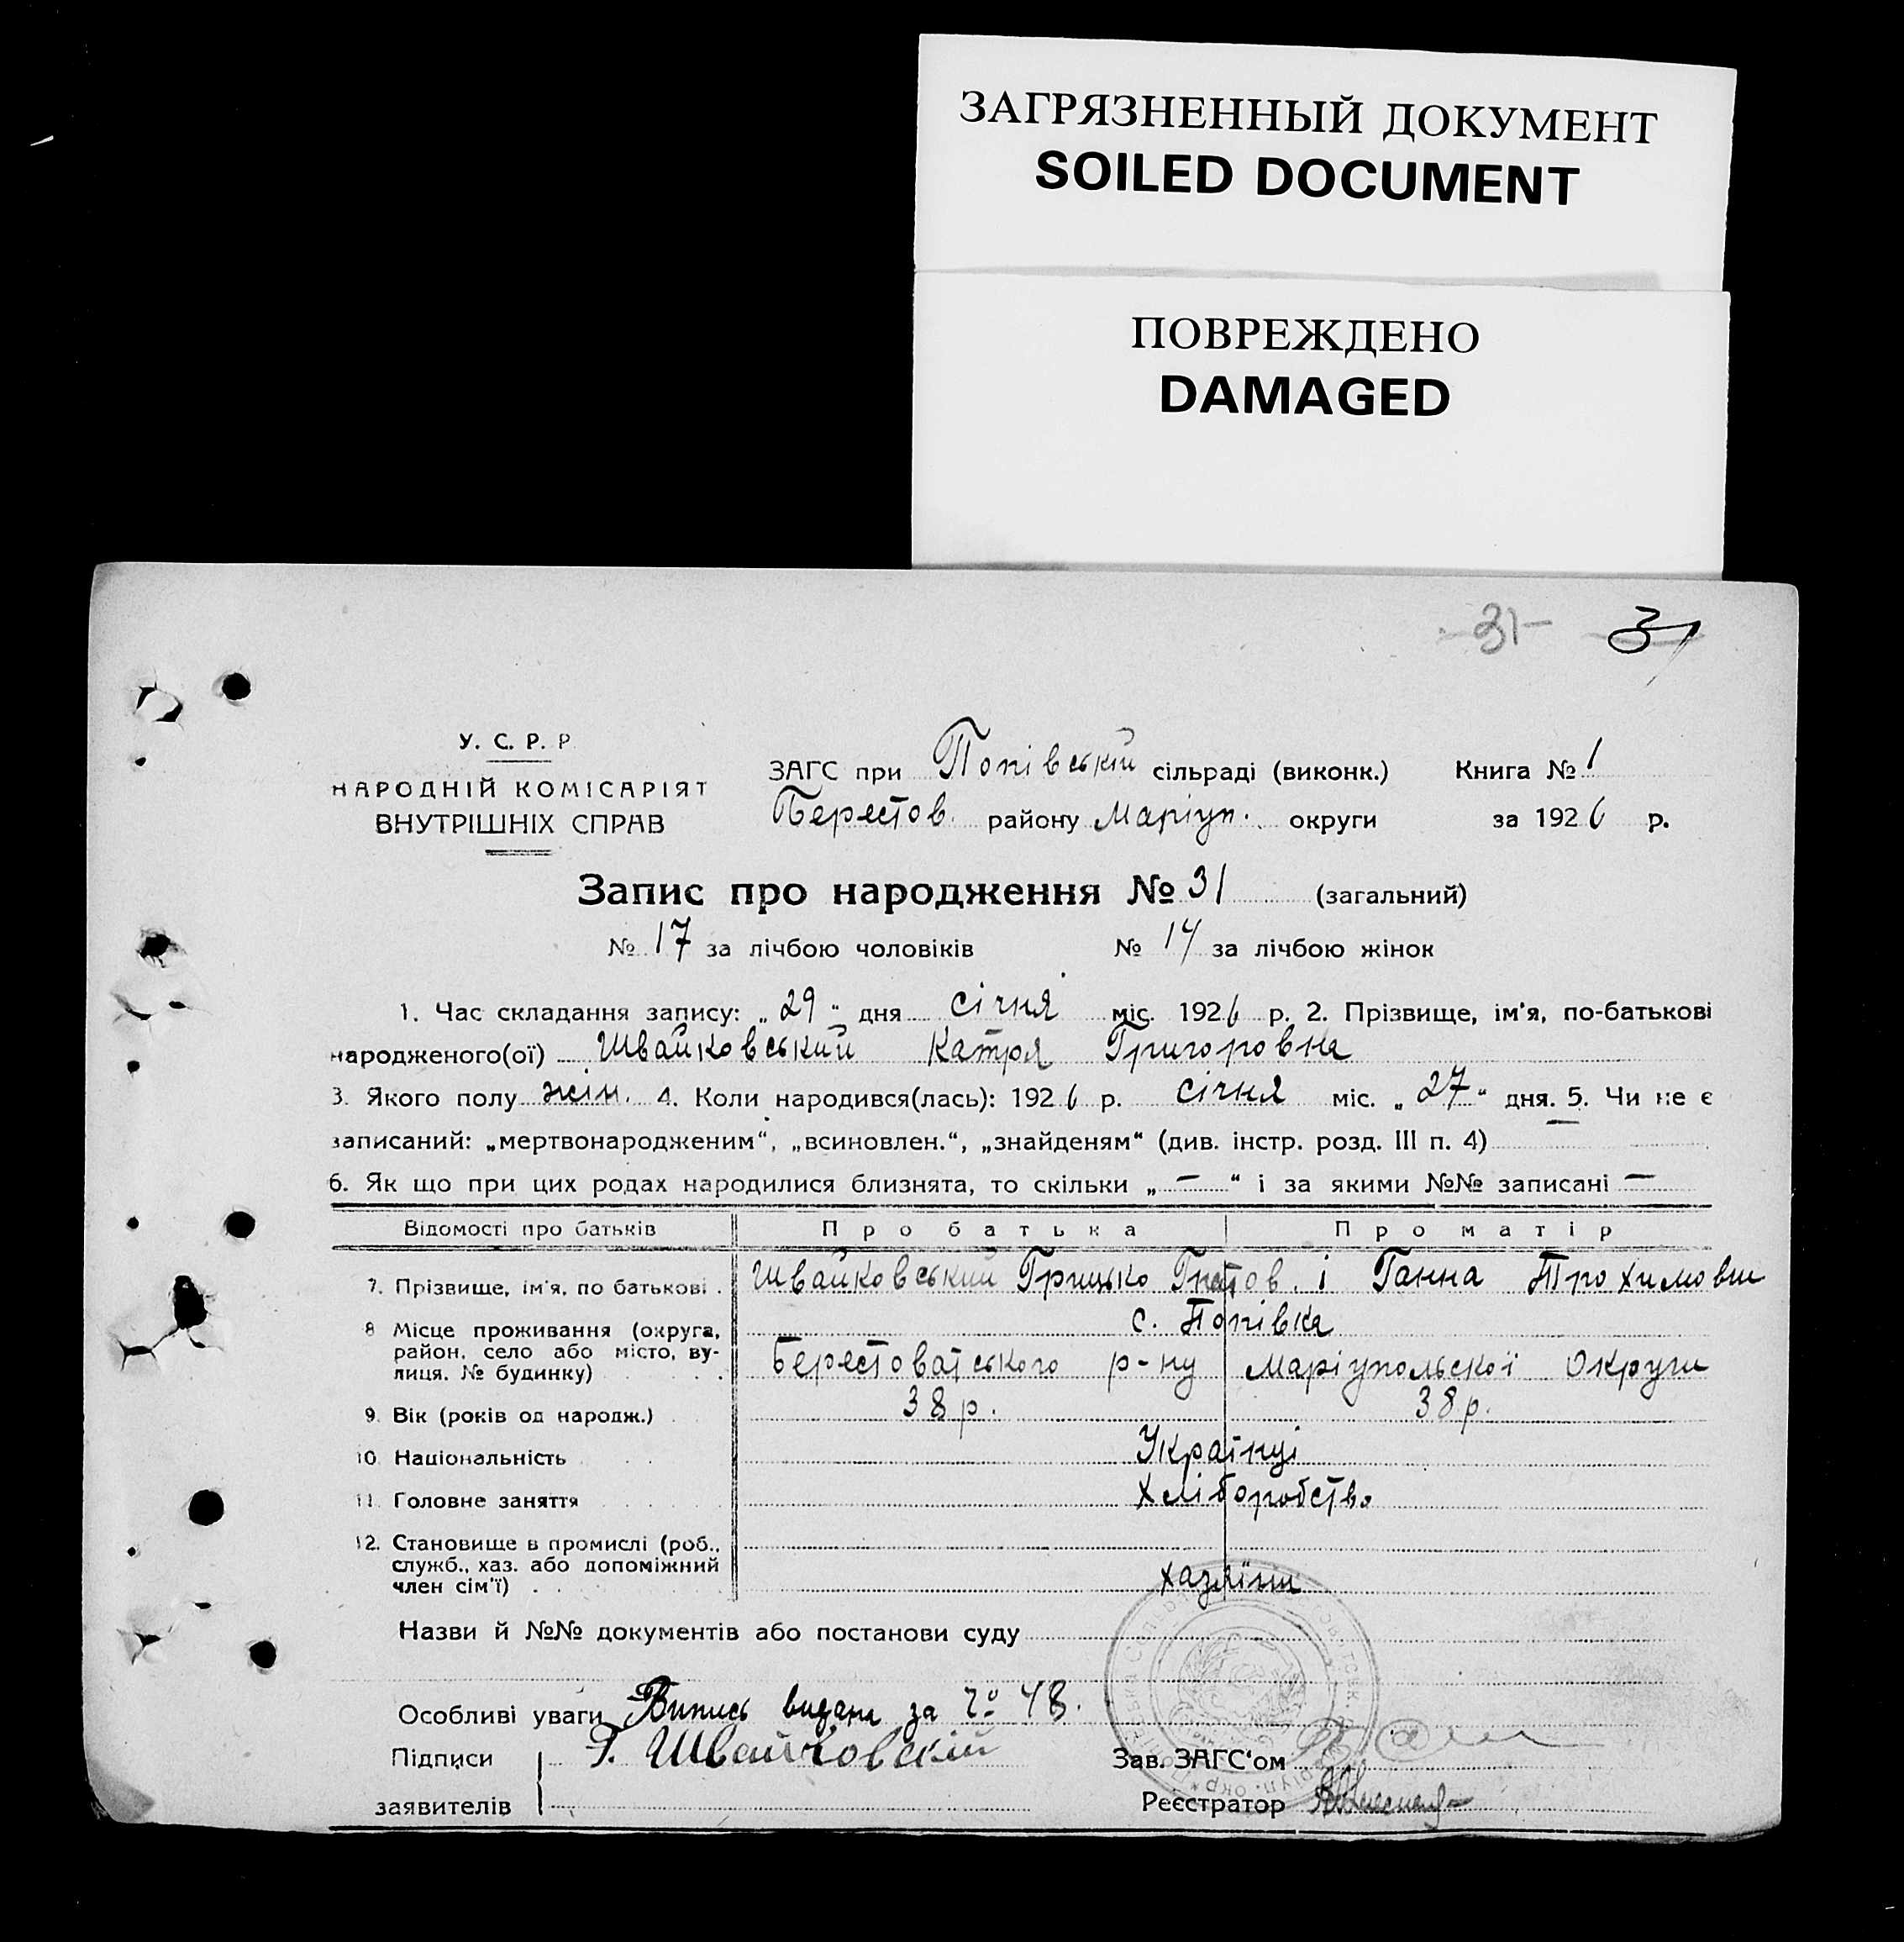 ЗАГРЯЗНЕННЫЙ ДОКУМЕНТ
SOILED DOCUMENT
ПОВРЕЖДЕНО
DAMAGED
-31- 31
У. С. Р. Р.
НАРОДНІЙ КОМІСАРІЯТ
ВНУТРІШНІХ СПРАВ
ЗАГС при Попівський сільраді (виконк.) Книга № 1
Берестов. району Маріуп. округи за 1926 р.
Запис про народження № 31 (загальний)
№ 17 за лічбою чоловіків № 14 за лічбою жінок
1. Час складання запису: „29“ дня січня міс. 1926 р. 2. Прізвище, ім'я, по-батькові
народженого(ої) Швайковський Катря Григоровна
3. Якого полу жін. 4. Коли народився(лась): 1926 р. січня міс. „27“ дня. 5. Чи не є
записаний: „мертвонародженим“, „всиновлен.“, „знайденям“ (див. інстр. розд. III п. 4) —
6. Як що при цих родах народилися близнята, то скільки „—“ і за якими №№ записані —
Відомості про батьків Про батька Про матір
7. Прізвище, ім'я, по батькові . Швайковський Грицько Гнатов. і Ганна Трохимовни
8 Місце проживання (округа, район, село або місто, вулиця, № будинку) с. Попівка
Берестоватського р-ну Маріупольскої округи
9. Вік (років од народж.) 38 р. 38 р.
10. Національність Українці
11. Головне заняття Хліборобство
12. Становище в промислі (роб., служб., хаз. або допоміжний член сім'ї) хазяїни
Назви й №№ документів або постанови суду
Особливі уваги Випись видана за № 48.
Підписи Г. Швайковскій Зав. ЗАГС'ом
заявителів Реєстратор